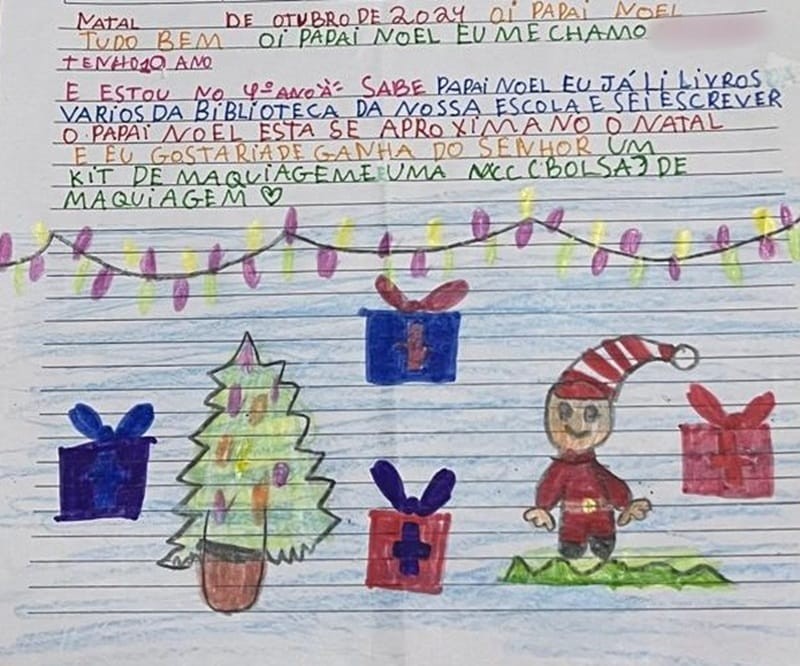 NATAL DE OTUBRO DE 2024 OI PAPAI NOEL
TUDO BEM OI PAPAI NOEL EU ME CHAMO
TENHO10 ANO
E ESTOU NO 4º ANO SABE PAPAI NOEL EU JÁ LI LIVROS
VARIOS DA BIBLIOTECA DA NOSSA ESCOLA E SEI ESCREVER
O PAPAI NOEL ESTA SE APROXIMANO O NATAL
E EU GOSTARIA DE GANHA DO SENHOR UM
KIT DE MAQUIAGEM E UMA (BOLSA) DE
MAQUIAGEM ♡